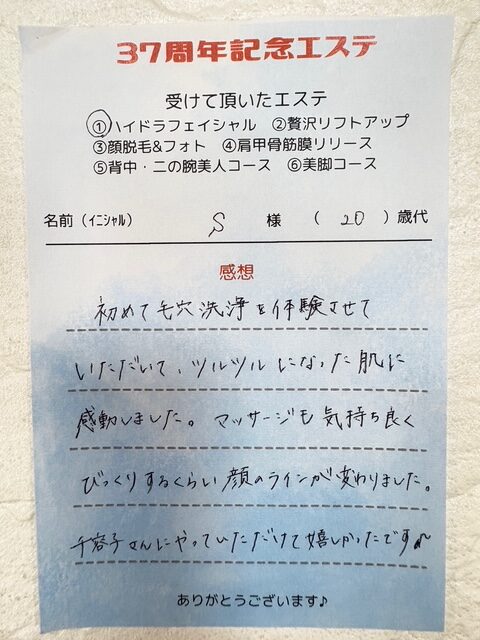 37周年記念エステ
受けて頂いたエステ
①ハイドラフェイシャル ②贅沢リフトアップ
③顔脱毛&フォト ④肩甲骨筋膜リリース
⑤背中・二の腕美人コース ⑥美脚コース
名前(イニシャル) S 様 ( 20 )歳代
感想
初めて毛穴洗浄を体験させて
いただいて、ツルツルになった肌に
感動しました。マッサージも気持ち良く
びっくりするくらい顔のラインが変わりました。
千容子さんにやっていただけて嬉しかったです
ありがとうございます♪